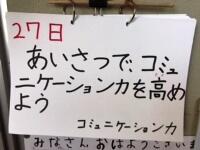 27日
あいさつで、コミュ
ニケーション力を高め
よう
コミュニケーション力
みなさん おはようございま